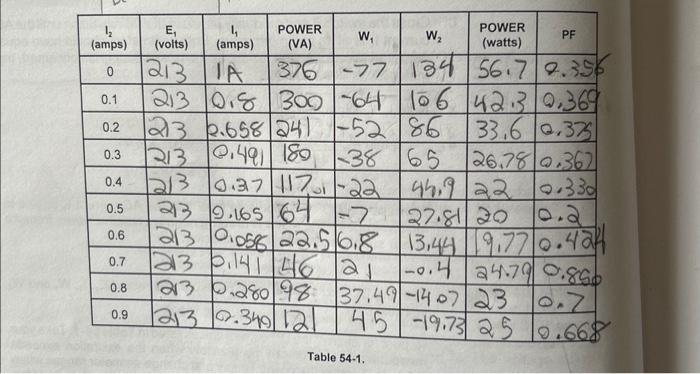 I₂ (amps) E₁ (volts) I₁ (amps) POWER (VA) W₁ W₂ POWER (watts) PF
0 213 1A 376 -77 134 56.7 0.356
0.1 213 0.8 300 -64 106 42.3 0.369
0.2 213 0.658 241 -52 86 33.6 0.375
0.3 213 0.491 180 -38 65 26.78 0.367
0.4 213 0.37 117.01 -22 44.9 22 0.330
0.5 213 0.165 64 -7 27.81 20 0.2
0.6 213 0.056 22.5 6.8 13.44 19.77 0.424
0.7 213 0.141 46 21 -0.4 24.79 0.860
0.8 213 0.280 98 37.49 -14.07 23 0.7
0.9 213 0.340 121 45 -19.73 25 0.668
Table 54-1.